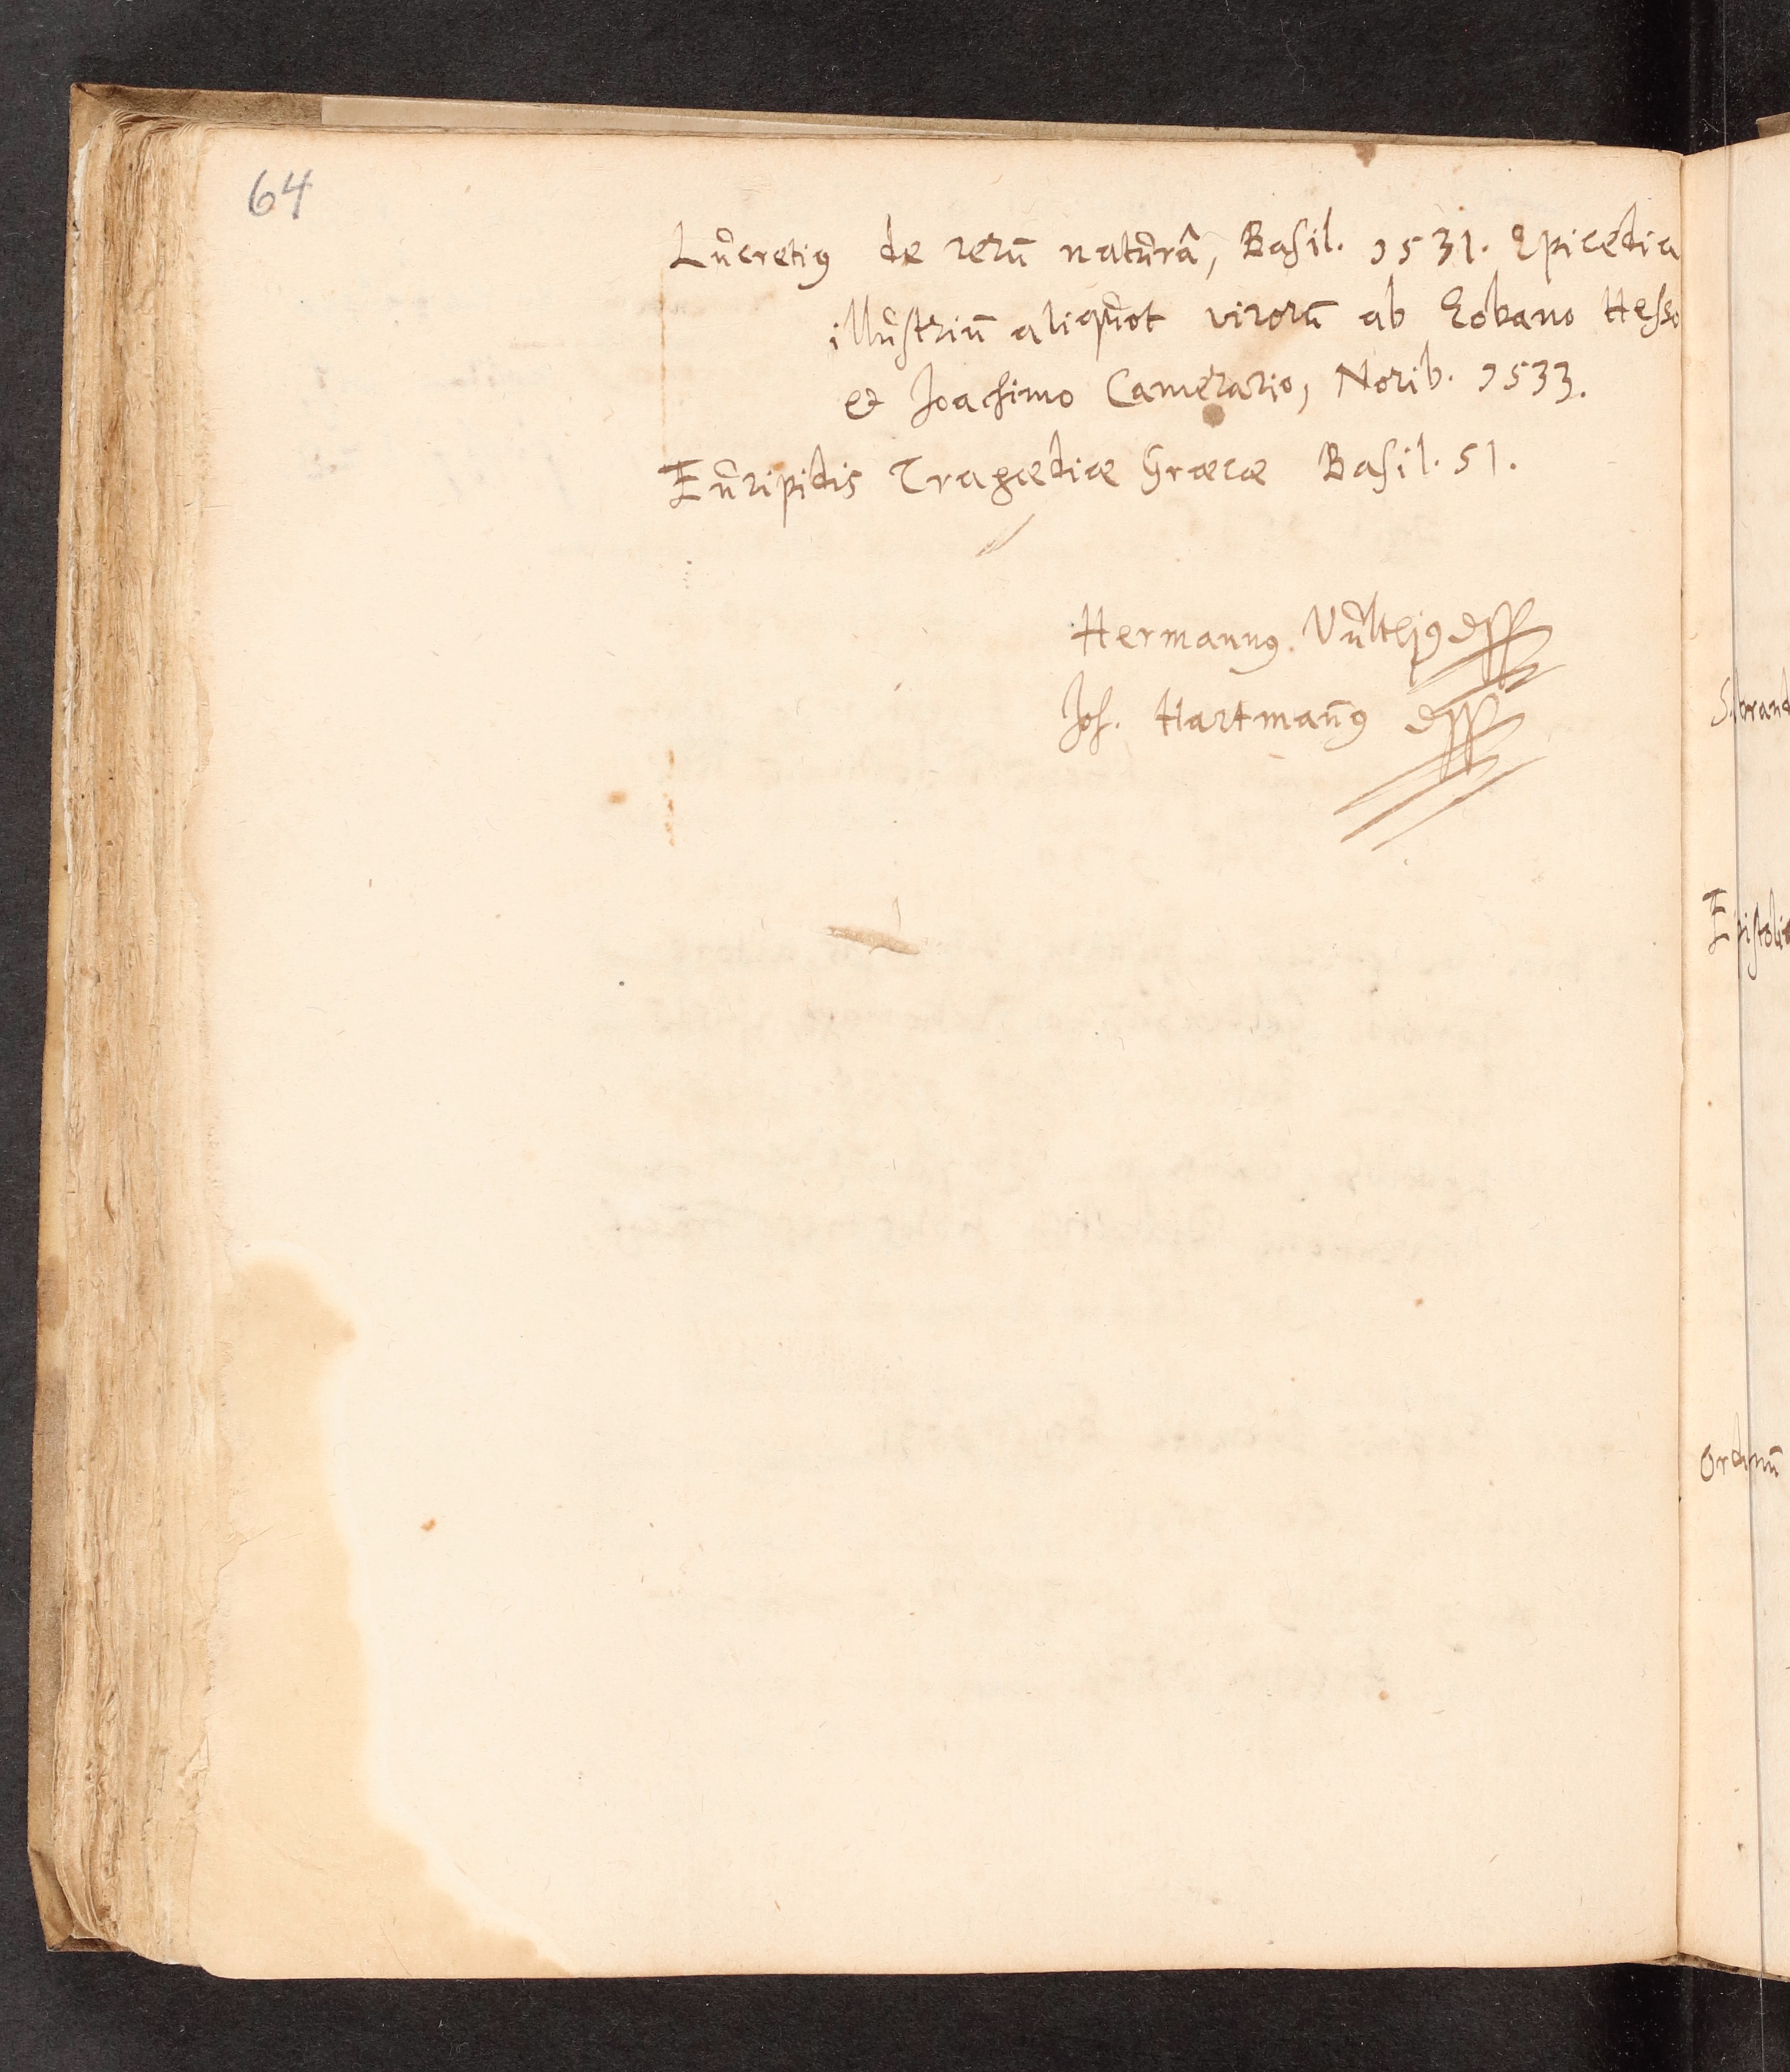 64
Lucretiꝰ de rerū naturâ, Basil. 1531. Epicedia
illustriū aliquot virorū ab Eobano Hesso
et Joachimo Camerario, Norib. 1533.
Euripidis Tragœdiæ Græcæ Basil. 51.
Hermannꝰ. Vultejꝰ
Joh. Hartman̄ꝰ
Epistolic
Ordinū